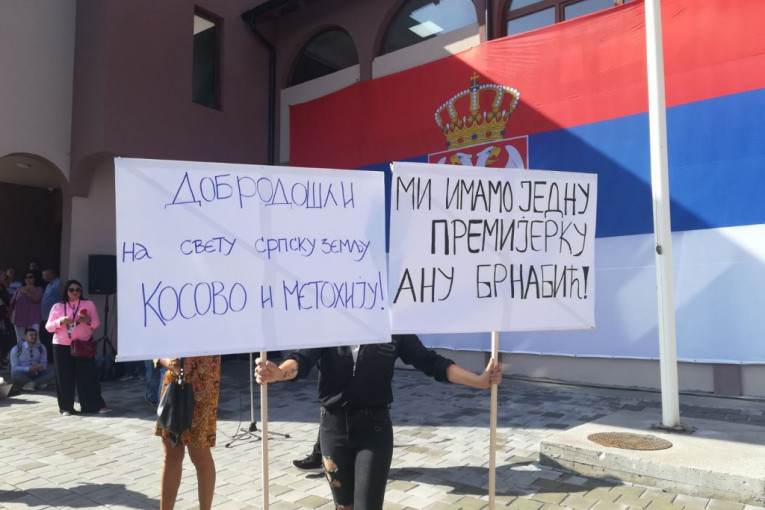 ДОБРОДОШЛИ
НА СВЕТУ СРПСКУ ЗЕМЉУ
КОСОВО И МЕТОХИЈУ!
МИ ИМАМО ЈЕДНУ
ПРЕМИЈЕРКУ
АНУ БРНАБИЋ!